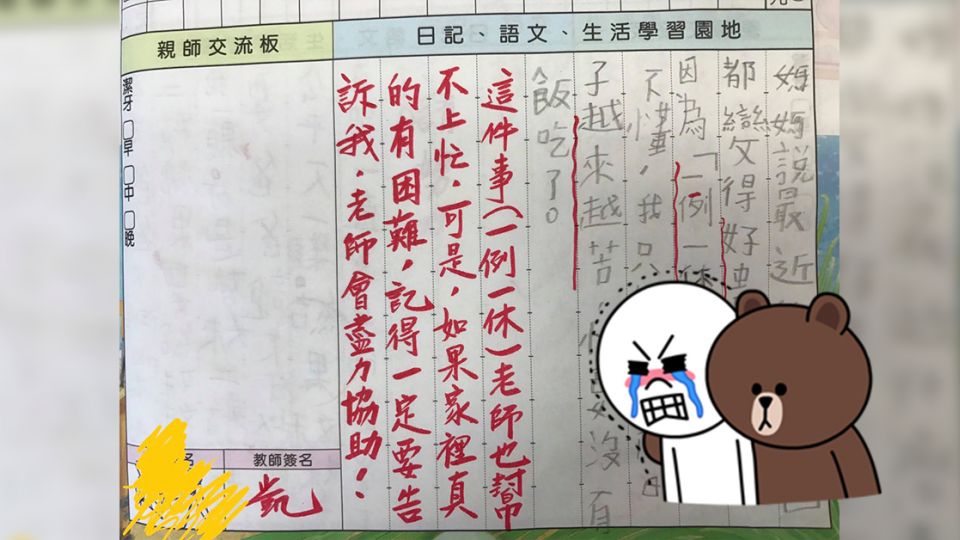 親師交流板
日記、語文、生活學習園地
媽媽說最近
都變得好
因為「一例一休
不懂,我只
子越來越苦
沒有
飯吃了。
這件事(一例一休)老師也幫
不上忙,可是,如果家裡真
的有困難,記得一定要告
訴我,老師會盡力協助!
潔牙 □早 □中 □晚
名
教師簽名
凱